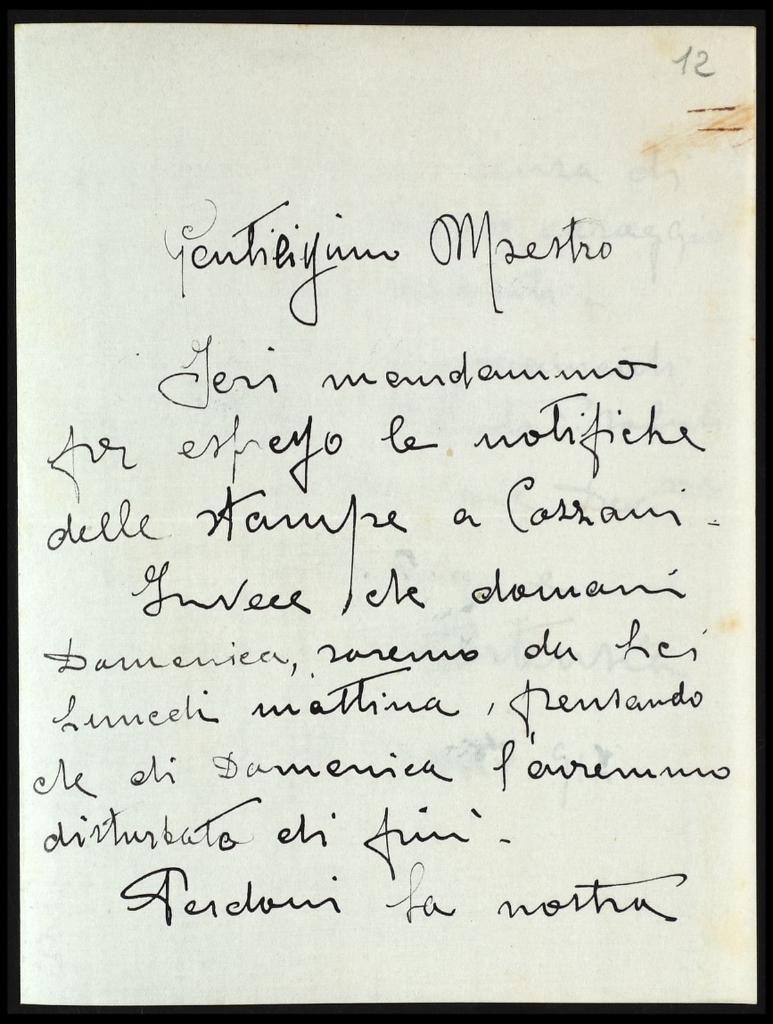 12
Gentilissimo Maestro
Ieri mandammo
per espresso le notifiche
delle stampe a Cozzani.
Invece che domani
Domenica, saremo da Lei
Lunedì mattina, pensando
che di Domenica l'avremmo
disturbato di più.
Perdoni la nostra